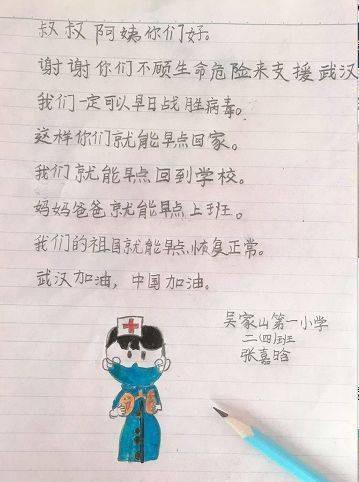 叔叔阿姨你们好。
谢谢你们不顾生命危险来支援武汉
我们一定可以早日战胜病毒。
这样你们就能早点回家。
我们就能早点回到学校。
妈妈爸爸就能早点上班。
我们的祖国就能早点恢复正常。
武汉加油，中国加油。
吴家山第一小学
二(四)班
张嘉晗